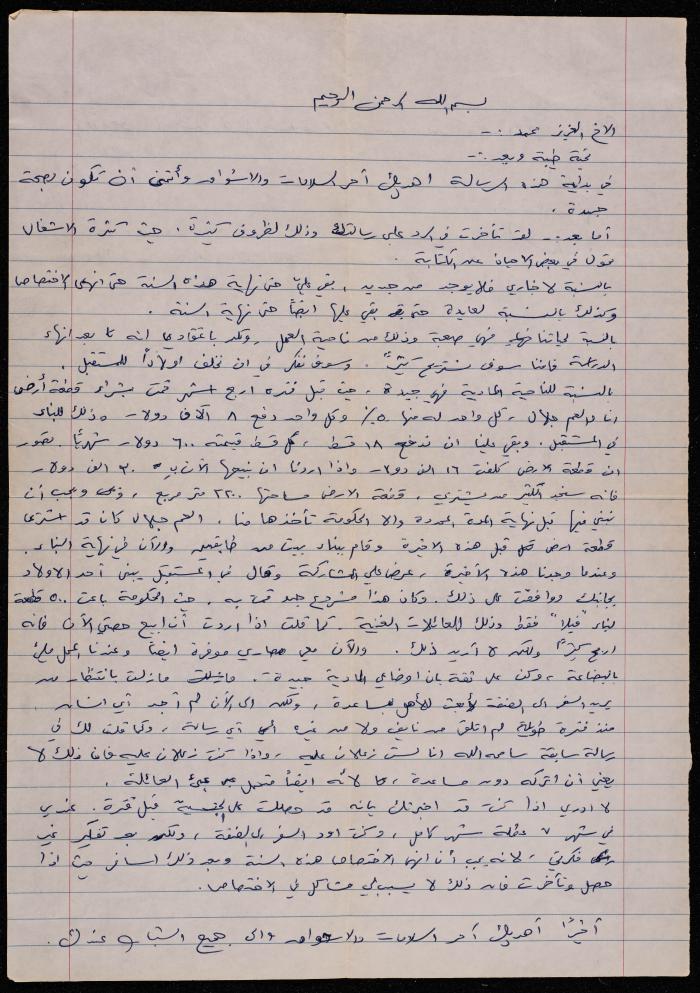 بسم الله الرحمن الرحيم
الاخ العزيز محمد :-
تحية طيبة وبعد :-
في بداية هذه الرسالة اهديك أحر السلامات والاشواق وأتمنى أن تكون بصحة
جيدة .
أما بعد .. لقد تأخرت في الرد على رسالتك وذلك لظروف كثيرة . حيث كثرة الاشغال
تحول في بعض الاحيان عن الكتابة .
بالنسبة لأخباري فلا يوجد من جديد ، بقي عليّ حتى نهاية هذه السنة حتى انهي الاختصاص
وكذلك بالنسبة لعايدة بقي عليها ايضاً حتى نهاية السنة .
بالنسبة لحياتنا فهي صعبة وذلك من ناحية العمل ، ولكن باعتقادي انه ما بعد انهاء
الدراسة فاننا سوف نستريح كثيراً . وسوف نفكر في ان نخلف اولاداً للمستقبل .
بالنسبة للناحية المادية فهي جيدة ، حيث قبل فترة اربع اشهر قمت بشراء قطعة أرض
انا والعم جلال ، كل واحد له منها ٥٠٪ وكل واحد دفع ٨ آلاف دولار وذلك للبناء
في المستقبل . وبقي علينا ان ندفع ١٨ قسط ، كل قسط قيمته ٦٠٠ دولار شهرياً . تصور
ان قطعة الارض كلفت ١٦ الف دولار واذا اردنا ان نبيعها الآن بـ ٣٠ الف دولار
فانه سنجد الكثير من يشتري . قطعة الارض مساحتها ٢٢٠٠ متر مربع ، ويجب أن
نبني فيها قبل نهاية المدة المحددة والا الحكومة تأخذها منا . العم جلال كان قد اشترى
قطعة ارض قبل هذه الاخيرة وقام ببناء بيت من طابقين والآن في نهاية البناء .
وعندما وجدنا هذه الأخيرة ، عرض علي المشاركة وقال في المستقبل يبني أحد الاولاد
بجانبك ووافقت على ذلك . وكان هذا مشروع جيد قمت به . حيث الحكومة باعت ٥٠٠ قطعة
لبناء "فيلا" فقط وذلك للعائلات الغنية . كما قلت اذا اردت أن ابيع حصتي الآن فانه
اربح كثيراً ولكن لا أريد ذلك . والآن معي مصاري موفرة ايضاً وعندنا المحل مليئ
بالبضاعة ، وكن على ثقة بان اوضاعي المادية جيدة . مازلت بانتظار من
يريد السفر الى الضفة لأبعث للأهل مساعدة ، ولكن الى الآن لم أجد أي انسان .
منذ فترة طويلة لم اتلقى من نايف ولا من غيره أي رسالة ، وكما قلت لك في
رسالة سابقة سامحه الله انا لست زعلان عليه ، واذا كنت زعلان عليه فان ذلك لا
يعني أن اتركه دون مساعدة ، لانه ايضاً متحمل عبئ العائلة .
لا ادري اذا كنت قد اخبرتك بانه قد حصلت على الجنسية قبل فترة . عندي
في شهر ٧ عطلة شهر كامل ، وكنت اود السفر الى الضفة ، ولكن بعد تفكير غيرت
فكرتي ، لانه يجب أن انهي الاختصاص هذه السنة وبعد ذلك اسافر حيث اذا
حصل وتأخرت فان ذلك لا يسبب لي مشاكل في الاختصاص .
أخيراً أهديك أحر السلامات والاشواق والى جميع الشباب عندك .